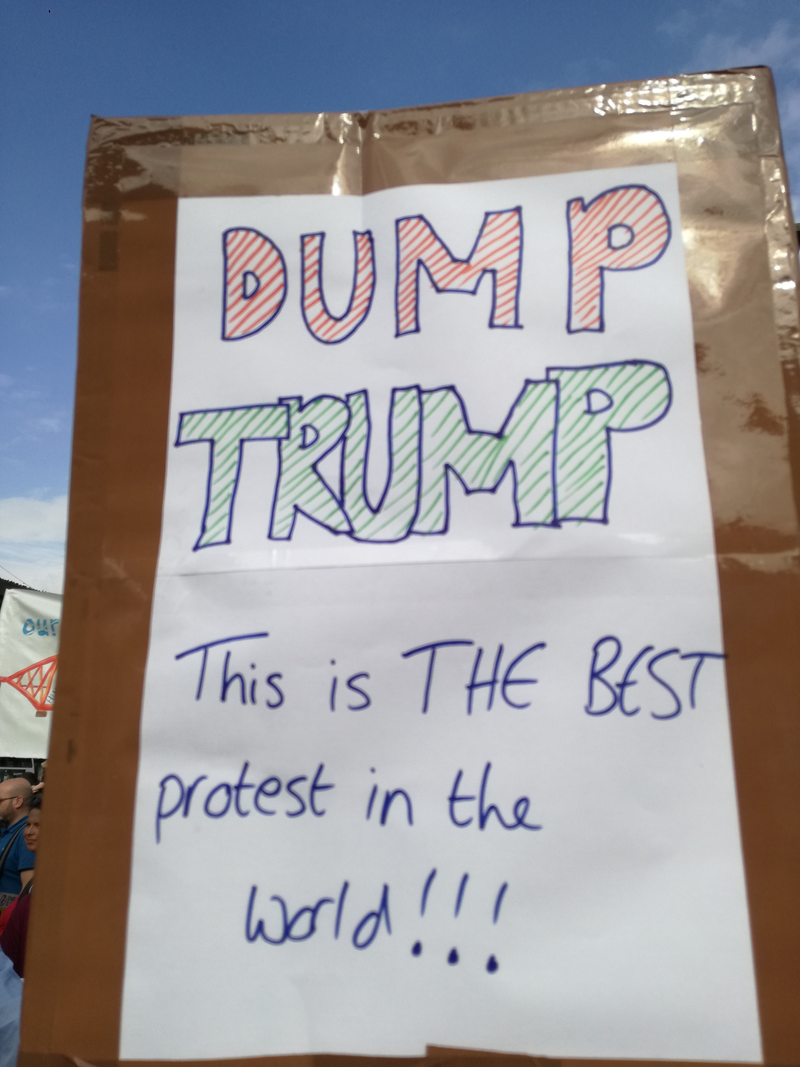 DUMP
TRUMP
This is THE BEST
protest in the
world!!!
our